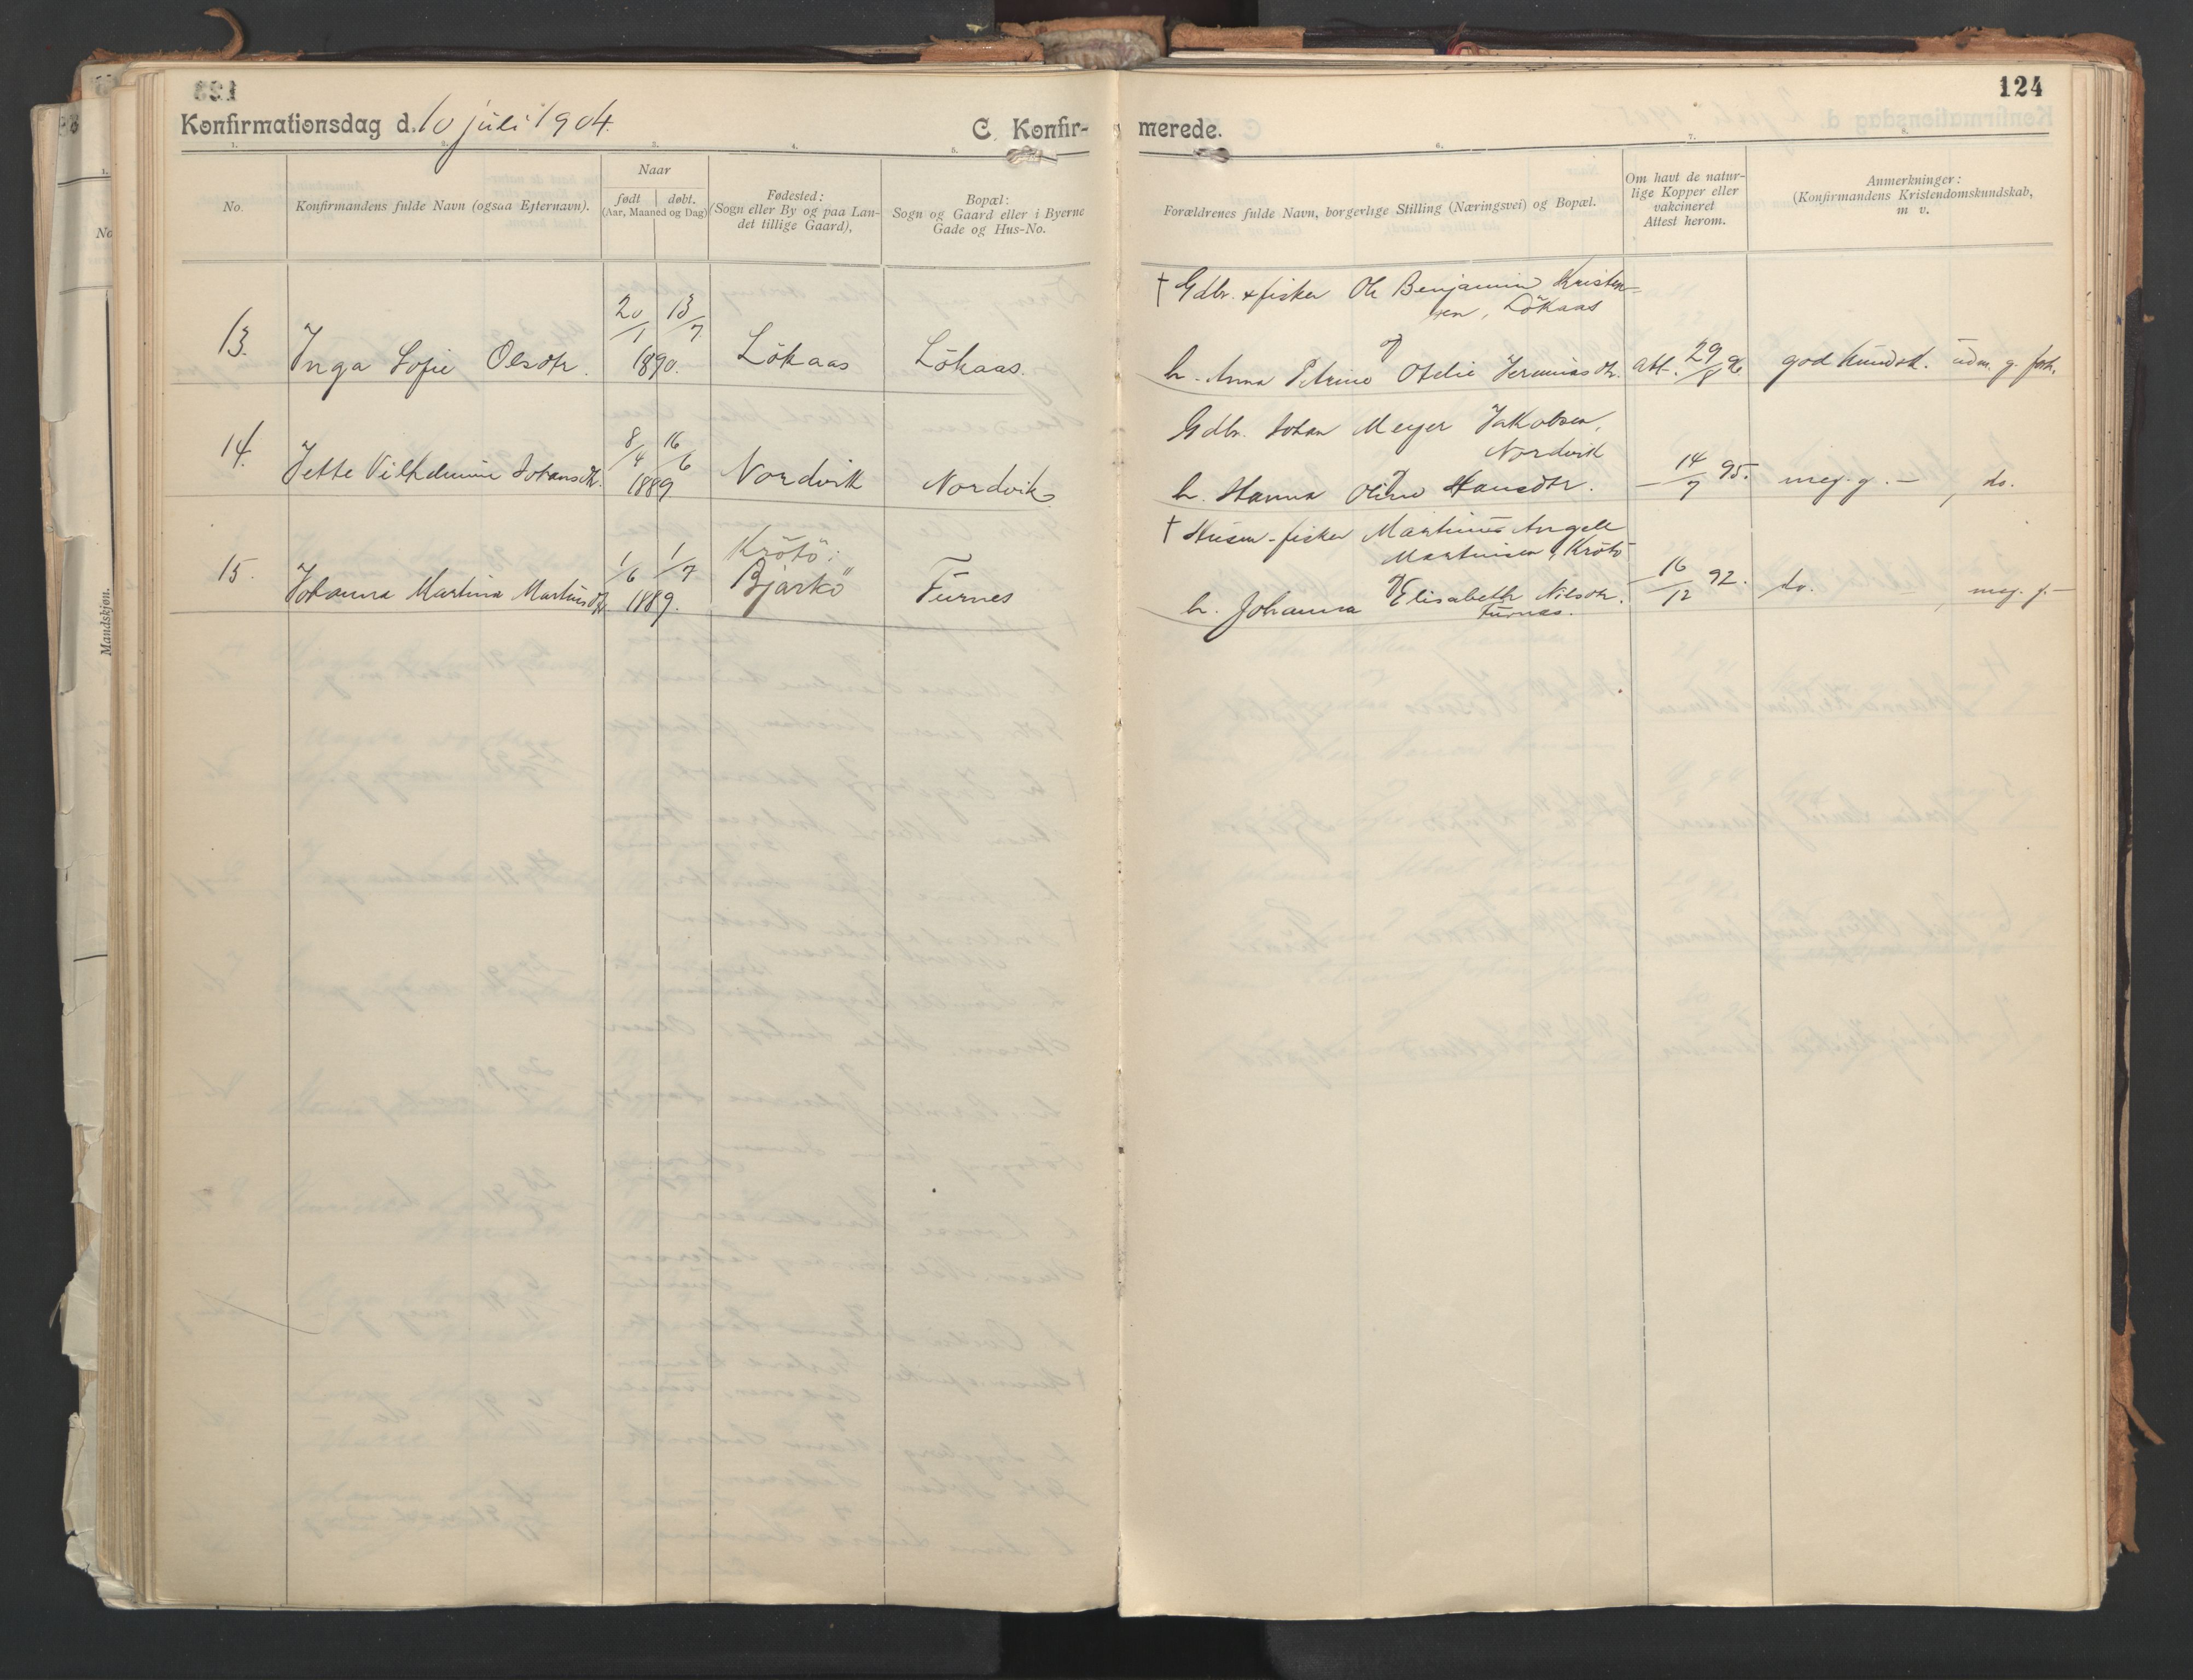 124
Konfirmationsdag d. 10 juli 1904.
C. Konfir-
merede.
1. 2. 3. 4. 5. 6. 7. 8.
No.
Konfirmandens fulde Navn (ogsaa Efternavn).
Naar
født | døbt.
(Aar, Maaned og Dag)
Fødested:
(Sogn eller By og paa Lan-
det tillige Gaard),
Bopæl:
Sogn og Gaard eller i Byerne
Gade og Hus-No.
Forældrenes fulde Navn, borgerlige Stilling (Næringsvei) og Bopæl.
Om havt de natur-
lige Kopper eller
vakcineret
Attest herom.
Anmerkninger:
(Konfirmandens Kristendomskundskab,
m v.
13. Inga Sofie Olsdtr. 20/1 13/7 1890. Lökaas Lökaas.
† Gdbr. & fisker Ole Benjamin Kristen-
sen, Lökaas
h. Anna Petrine Otelie Jeremiasdtr. att. 29/8 96. god kundsk. udm. g. forh.
14. Jette Vilhelmine Johansdtr. 8/4 16/6 1889 Nordvik Nordvik
Gdbr. Johan Meyer Jakobsen,
Nordvik
h. Hanna Oline Hansdtr. — 14/7 95. meg. g. — , do.
15. Johanna Martina Martinsdtr. 1/6 1/7 1889. Krötö: Bjarkö Furnes
† Husm. - fisker Martinus Angell
Martinsen, Krötö
h. Johanna Elisabeth Nilsdtr. — 16/12 92. do. , meg. g. —
Furnes.
Mandskjøn.